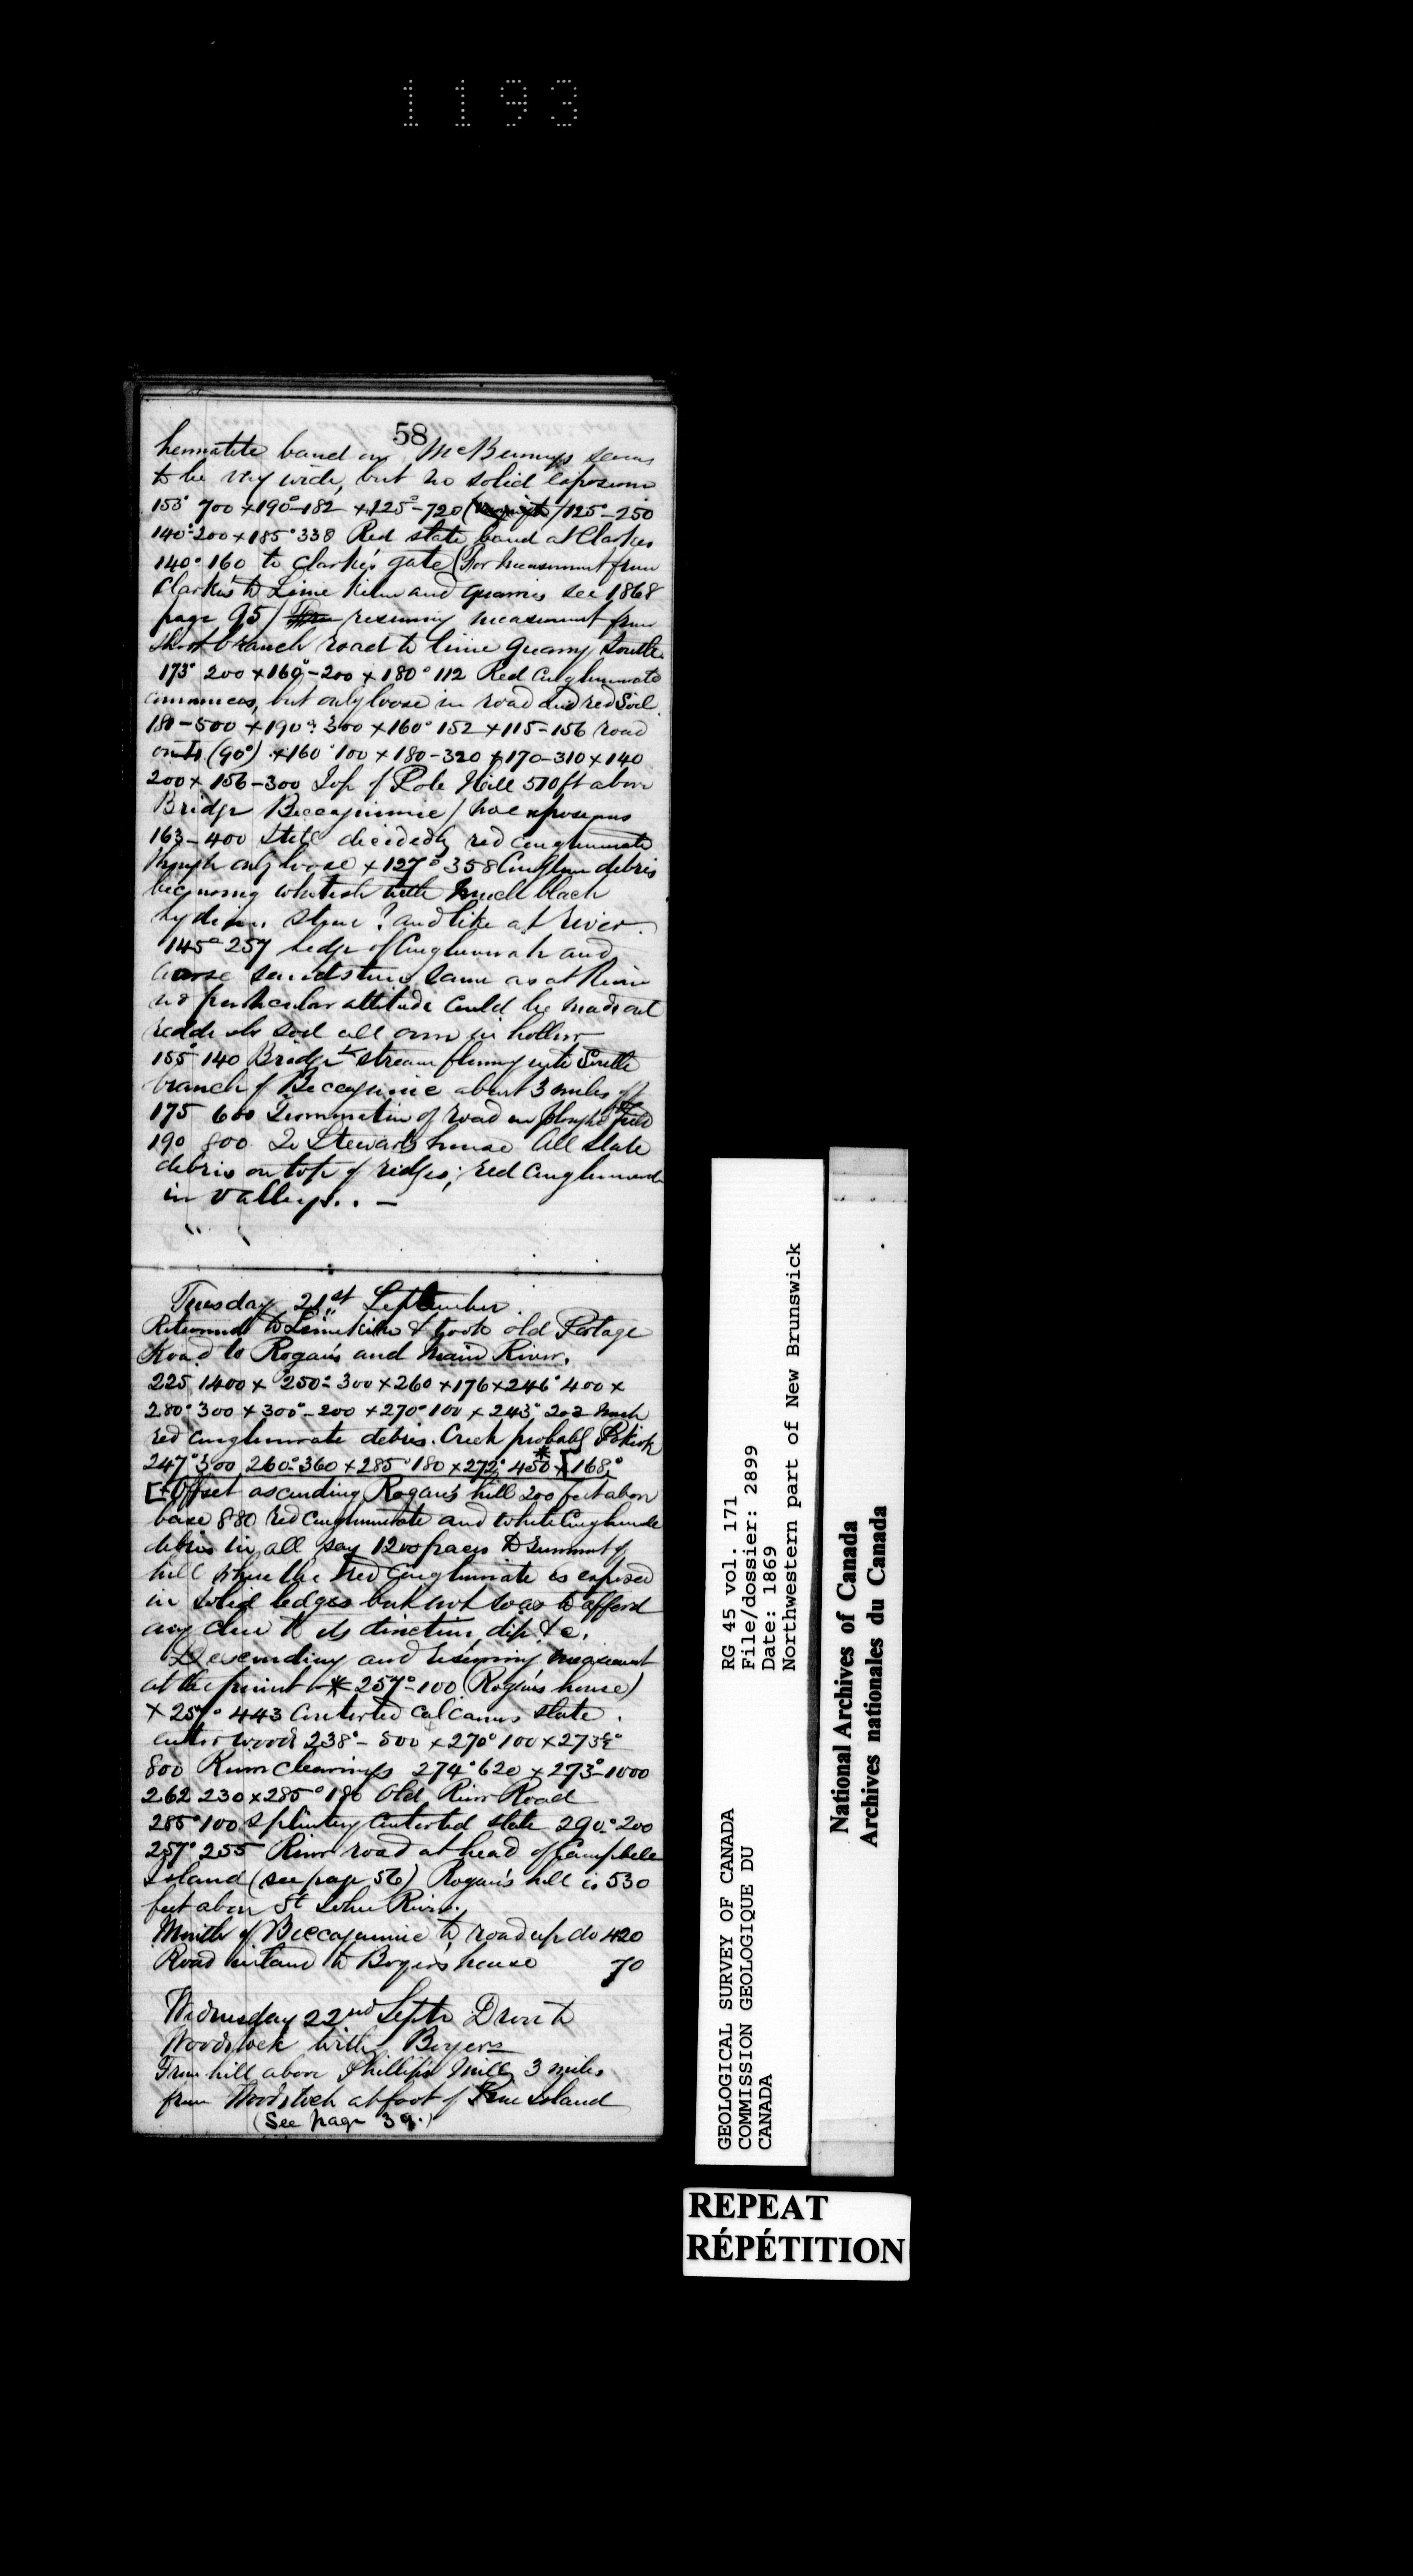 1193
58
hematite band on McBurneys seems
to be very wide, but no solid exposure
153° 700 x 190°-182 x 225°-720 / 125°-250
140°-200 x 185° 338 Red slate band at Clarkes
140° 160 to Clarke's gate (For measurement from
Clarkes to Lime Kiln and quarries see 1868
page 95) resuming measurement from
short branch road to lime quarry South.
173° 200 x 160°-200 x 180° 112 Red Conglomerate
commences, but only loose in road and red Soil.
181-500 x 190° 300 x 160° 152 x 115-156 road
(90°) x 160° 100 x 180-320 x 170-310 x 140
200 x 156-300 Top of Pole Hill 510 ft above
Bridge Beccaguimic / no exposures
163-400 Still decidedly red conglomerate
though only loose x 127° 358 Conglom debris
becoming whitish with much black
stone? and like at river.
145° 257 ledge of Conglomerate and
coarse sandstone same as at River
no particular attitude could be made out
reddish soil all over in hollow
155° 140 Bridge stream flowing into South
branch of Beccaguimic about 3 miles off
175 600 Termination of road in ploughed field
190 800 To Stewarts house All slate
debris on top of ridges; red Conglomerate
in valleys. . –
Tuesday 21st September
Returned to Limekiln & took old Portage
Road to Rogan's and Main River.
225 1400 x 250° 300 x 260 x 176 x 246° 400 x
280° 300 x 300°-200 x 270° 100 x 243° 202 Much
red conglomerate debris. Creek probably Pokiok
247° 300 260° 360 x 285° 180 x 272° 450 * x [168°
[+Offset ascending Rogan's hill 200 feet above
base 880 red conglomerate and white Conglomde
debris in all, say 1200 paces to summit of
hill where the red conglomerate is exposed
in solid ledges but not so as to afford
any clue to its direction dip &c.
Descending and resuming measurement
at the point * 257°-100 (Rogan's house)
x 257° 443 Contorted calcareous slate.
enter wood 238°-500 x 270° 100 x 273½°
800 River clearings 274° 620 x 273°-1000
262 230 x 285° 180 Old River Road
285° 100 Splintery Contorted slate 290° 200
257° 255 River road at head of Campbells
Island (see page 56) Rogan's hill is 530
feet above St John River.
Mouth of Beccaguimic to road up do 420
Road inland to Boyers house 70
Wednesday 22nd Septr Drove to
Woodstock with Boyers
From hill above Phillips Mill, 3 miles
from Woodstock at foot of Island
(See page 39.)
GEOLOGICAL SURVEY OF CANADA
COMMISSION GEOLOGIQUE DU
CANADA
RG 45 vol. 171
File/dossier: 2899
Date: 1869
Northwestern part of New Brunswick
National Archives of Canada
Archives nationales du Canada
REPEAT
RÉPÉTITION